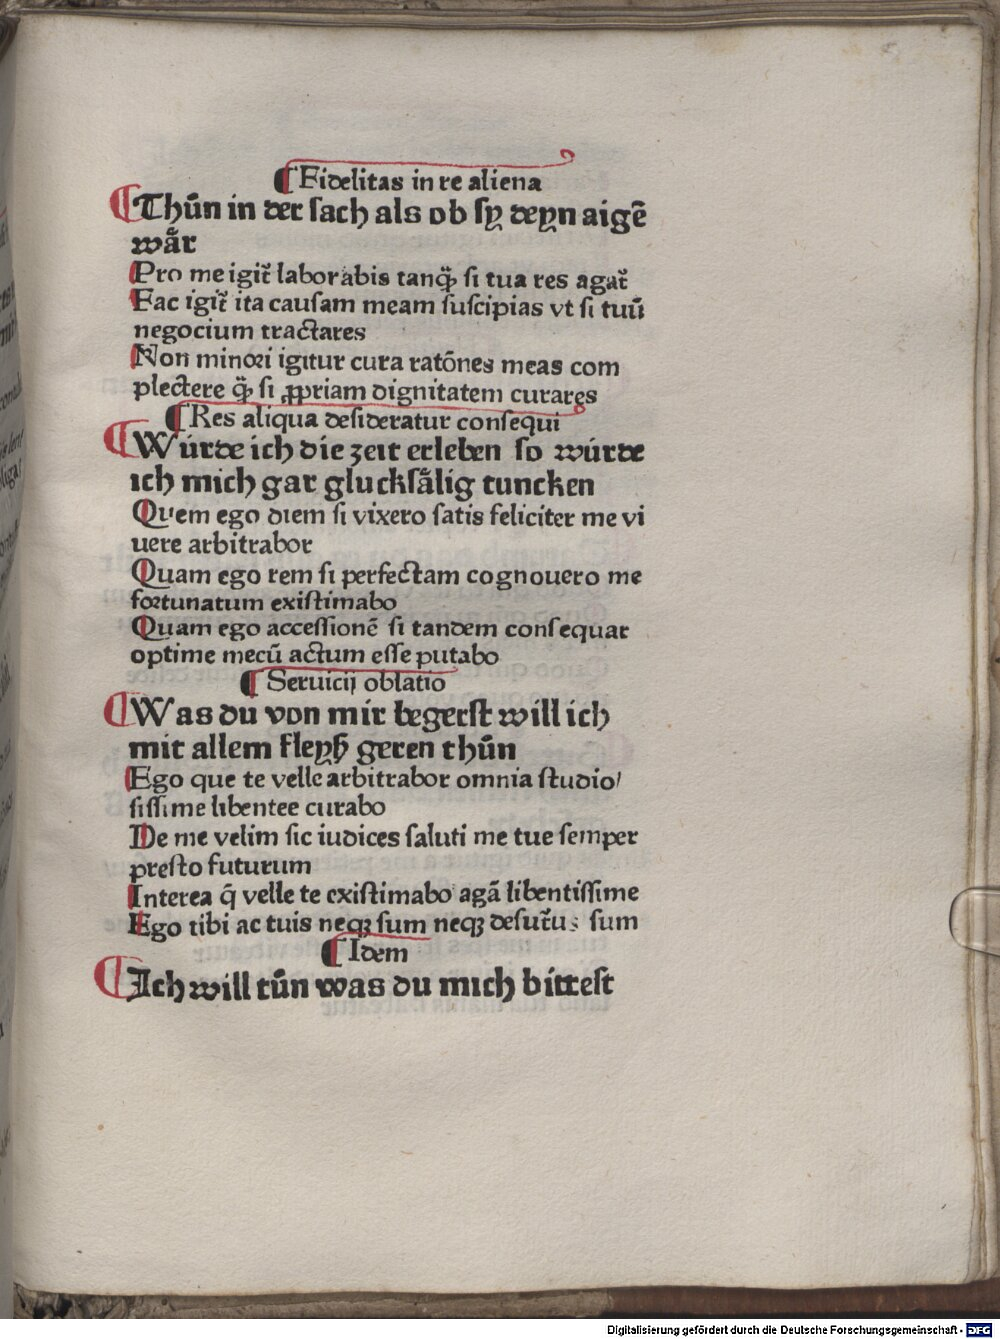 ¶Fidelitas in re aliena
¶Thůn in der ſach als ob ſy deyn aigē
wår
Pro me igit̃ laborabis tanq̃ ſi tua res agat̃
Fac igit̃ ita cauſam meam ſuſcipias vt ſi tuū
negocium tractares
Non minori igitur cura ratōnes meas com
plectere q̃ ſi ꝓpriam dignitatem curares
¶Res aliqua deſideratur conſequi
¶Wúrde ich die zeit erleben ſo wúrde
ich mich gar gluckſålig tuncken
Quem ego diem ſi vixero ſatis feliciter me vi
uere arbitrabor
Quam ego rem ſi perfectam cognouero me
fortunatum exiſtimabo
Quam ego acceſſionē ſi tandem conſequar
optime mecū actum eſſe putabo
¶Seruicij oblatio
¶Was du von mir begerſt will ich
mit allem fleyß geren thůn
Ego que te velle arbitrabor omnia ſtudio/
ſiſſime libentee curabo
De me velim ſic iudices ſaluti me tue ſemper
preſto futurum
Interea q̄ velle te exiſtimabo agā libentiſſime
Ego tibi ac tuis neqꝫ ſum neqꝫ defut̃us ſum
¶Idem
¶Ich will tůn was du mich bitteſt
Digitalisierung gefördert durch die Deutsche Forschungsgemeinschaft - DFG